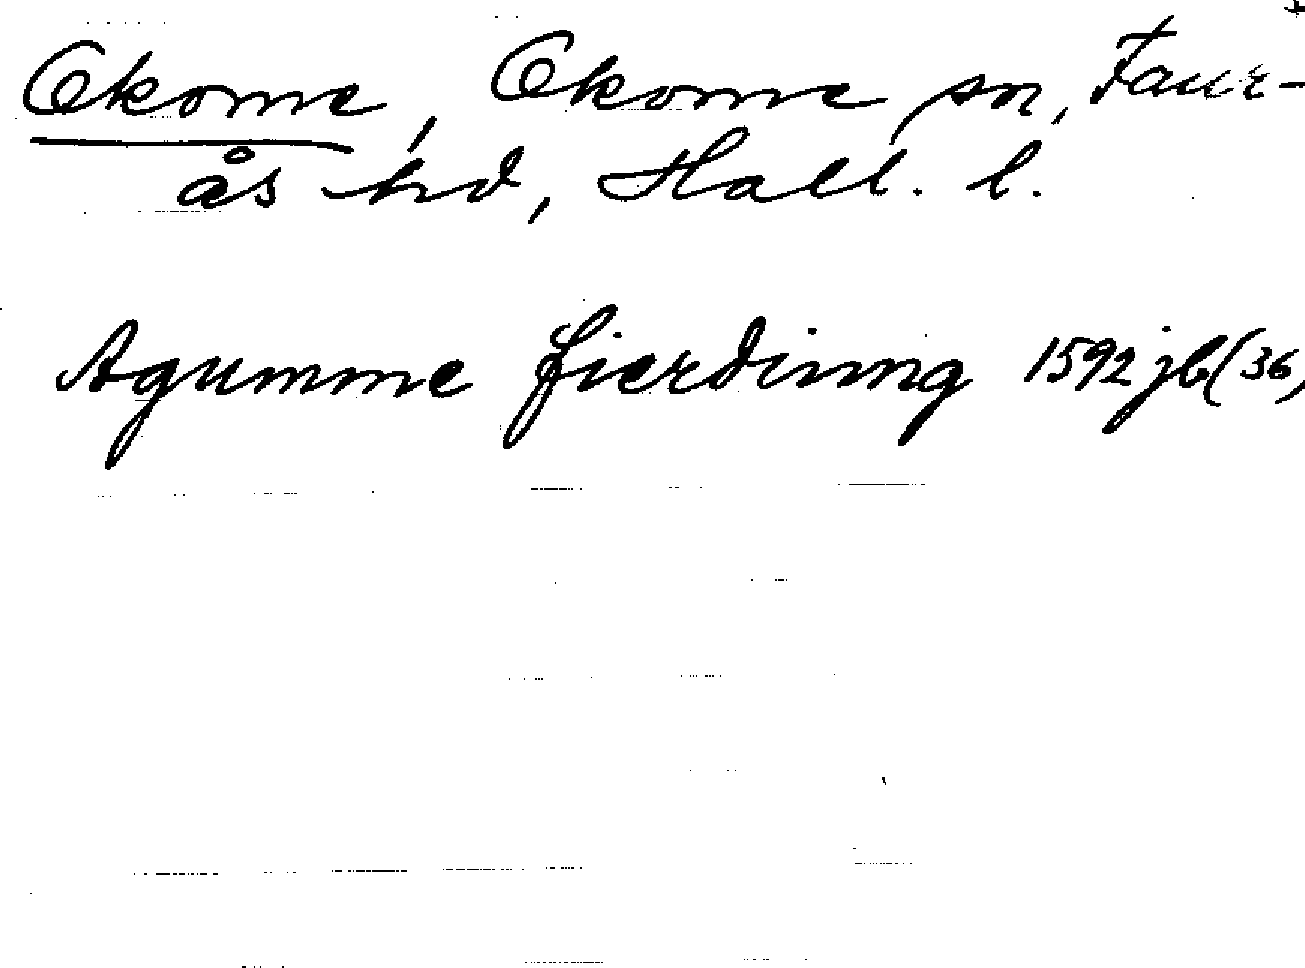 Okome, Okome sn, Faur-
ås hd, Hall. l.
Agumme fierding 1592 jb (36,